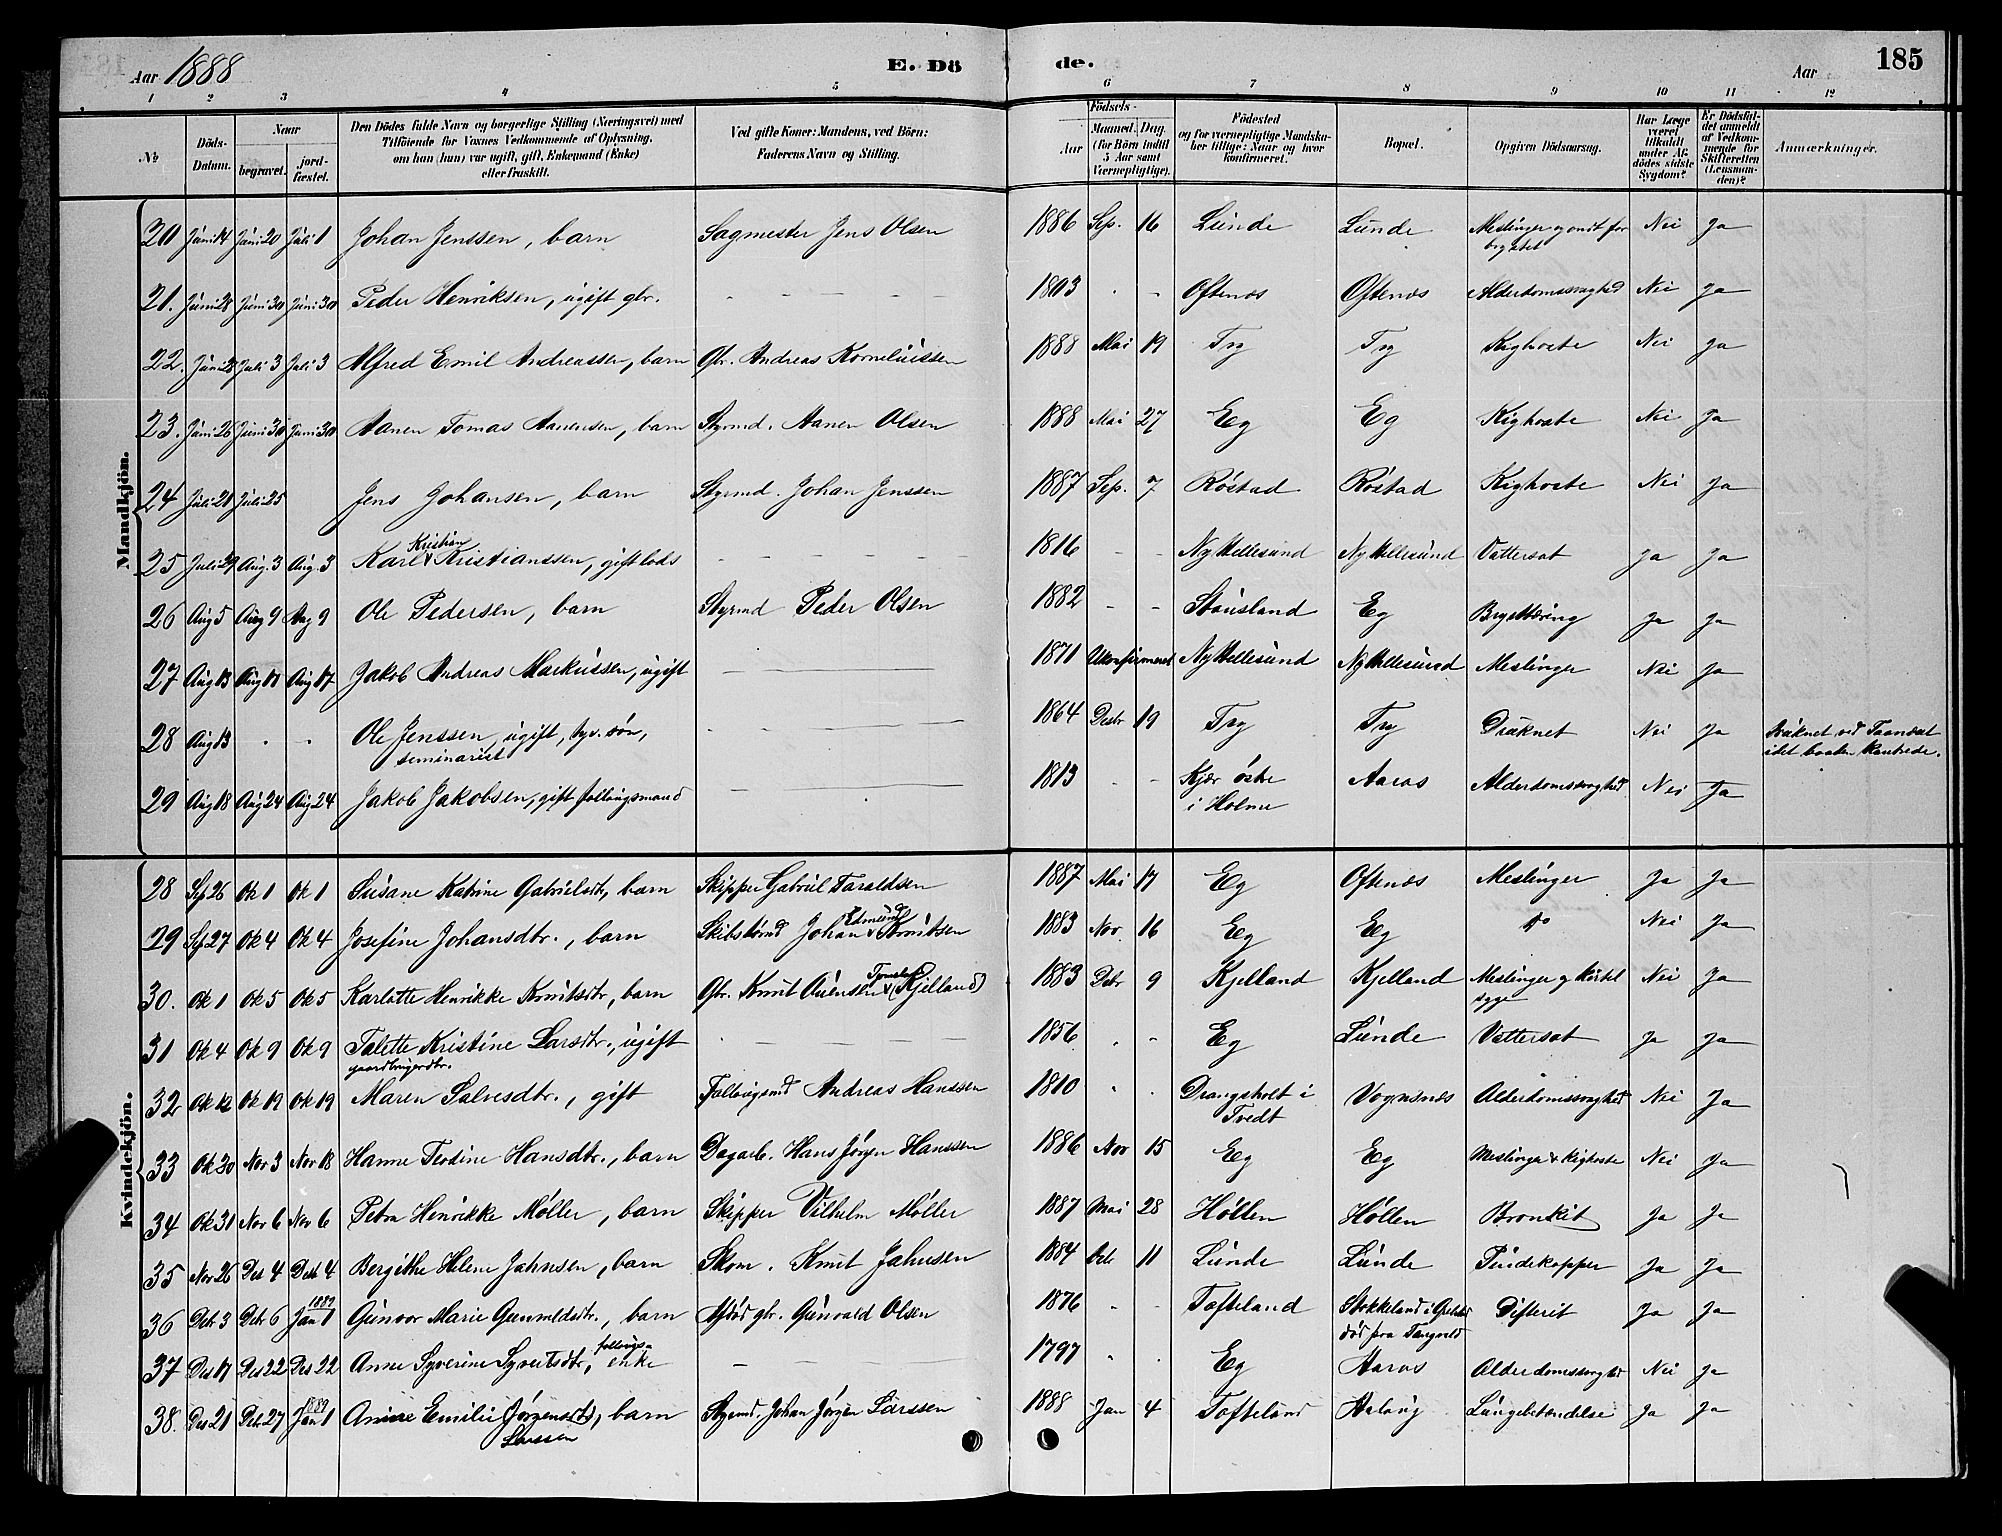 Aar 1888 E. Döde. Aar 185
1 2 3 4 5 6 7 8 9 10 11 12
No Döds-Datum. Naar begravet. jord-fæstet. Den Dödes fulde Navn og borgerlige Stilling (Næringsvei) med Tilföiende for Voxnes Vedkommende af Oplysning, om han (hun) var ugift, gift, Enkemand (Enke) eller fraskilt. Ved gifte Koner: Mandens, ved Börn: Faderens Navn og Stilling. Födsels- Aar Maaned. Dag. (for Börn indtil 5 Aar samt Værnepligtige). Födested og for værnepligtige Mandskaber tillige: Naar og hvor konfirmeret. Bopæl. Opgiven Dödsaarsag. Har Læge været tilkaldt under Afdödes sidste Sygdom? Er Dödsfaldet anmeldt af Vedkommende for Skifteretten (Lensmanden)? Anmærkninger.
Mandkjön.
20 Juni 14 Juni 20 Juli 1 Johan Jenssen, barn Sagmester Jens Olsen 1886 Sep. 16 Lunde Lunde Meslinger og ondt for brystet Nei Ja
21. Juni 28 Juni 30 Juni 30 Peder Henriksen, ugift gbr. – – – – 1803 . – Oftenæs Oftenæs Alderdomssvaghed Nei Ja
22. Juni 28 Juli 3 Juli 3 Alfred Emil Andreassen, barn Gbr. Andreas Korneliussen 1888 Mai 19 Try Try Kighoste Nei Ja
23. Juni 26 Juni 30 Juni 30 Aanen Tomas Aanensen, barn Styrmd. Aanen Olsen 1888 Mai 27 Eg Eg Kighoste Nei Ja
24 Juli 20 Juli 25 Jens Johansen, barn Styrmd. Johan Jenssen 1887 Sep. 7 Röstad Röstad Kighoste Nei Ja
25 Juli 29 Aug. 3 Aug. 3 Karl Kristian Kristianssen, gift lods – – – – 1816 – – Ny Hellesund Ny Hellesund Vattersot Ja Ja
26 Aug 5 Aug 9 Aug 9 Ole Pedersen, barn Styrmd Peder Olsen 1882 – – Stausland Eg Brysttæring Ja Ja
27 Aug 13 Aug 17 Aug 17 Jakob Andreas Markussen, ugift – – – – 1871 Ukonfirmeret Ny Hellesund Ny Hellesund Meslinger Nei Ja
28 Aug 13 . . Ole Jenssen, ugift, gbr. sön, seminarist – – – – 1864 Decbr 19 Try Try Druknet Nei Ja Druknet ved idet baaden kantrede.
29 Aug 18 Aug 24 Aug 24 Jakob Jakobsen, gift follaugsmand – – – – 1813 . – Kjær östre i Holme Aaros Alderdomssvaghed Nei Ja
Kvindekjön.
28 Sep 26 Ok 1 Ok 1 Susane Katrine Gabrielsdtr, barn Skipper Gabriel Taraldsen 1887 Mai 17 Eg Oftenæs Meslinger Ja Ja
29 Sep 27 Ok 4 Ok 4 Josefine Johansdtr., barn Skibstömd Johan Edmund Knutsen 1883 Nov. 16 Eg Eg do Nei Ja
30. Ok 1 Ok 5 Ok 5 Karlotte Henrikke Knutsdtr, barn Gbr. Knut Auensen (Kjelland) 1883 Debr 9 Kjelland Kjelland Meslinger og kirtelsyge Nei Ja
31 Ok 4 Ok 9 Ok 9 Talette Kristine Larsdtr., ugift gaardbrugerdtr. – – – – 1856 . . Eg Lunde Vattersot Ja Ja
32 Ok 12 Ok 19 Ok 19 Maren Salvesdtr., gift Follaugsmd Andreas Hanssen 1810 . . Drangsholt i Tvedt Vognsnæs Alderdomssvaghed Nei Ja
33 Ok 30 Nov 3 Nov 18 Hanne Terdine Hansdtr., barn Dagarb. Hans Jörgen Hanssen 1886 Nov 15 Eg Eg Meslinger & Kighoste Nei Ja
34 Ok 31 Nov 6 Nov 6 Petra Henrikke Möller, barn Skipper Vilhelm Möller 1887 Mai 28 Höllen Höllen Bronkit Ja Ja
35 Nov 26 Des 4 Desb 4 Bergithe Helene Jahnsen, barn Skom. Knut Jahnsen 1884 11 Lunde Lunde Ja Ja
36 Deb. 3 Deb 6 1889 Jan 1 Gunvor Marie Gunvaldsdtr., barn Afdöd gbr. Gunvald Olsen 1876 . . Tofteland Stokkeland i död fra Tangvald Difterit Ja Ja
37 Des 17 Des 22 Des 22 Anne Syverine Syvertsdtr, follaugs-enke – – 1797 . . Eg Aaros Alderdomssvaghed Nei Ja
38. Des 21 Deb 27 1889 Jan 1 Anne Emilie Jörgensdtr, barn Larssen Styrmd. Johan Jörgen Larssen 1888 Jan 4 Tofteland Aalaug Lungebetændelse Ja Ja